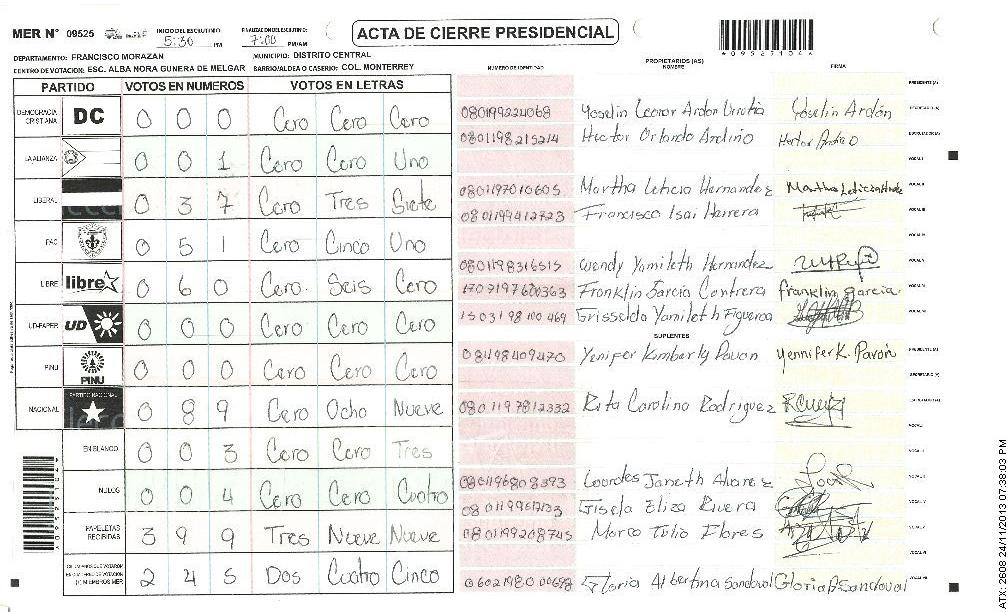 MER N° 09525
INICIO DEL ESCRUTINIO 5:30 PM
FINALIZACION DEL ESCRUTINIO: 7:00 PM/AM
ACTA DE CIERRE PRESIDENCIAL
*09527104*
DEPARTAMENTO: FRANCISCO MORAZAN MUNICIPIO: DISTRITO CENTRAL
CENTRO DE VOTACION: ESC. ALBA NORA GUNERA DE MELGAR BARRIO/ALDEA O CASERIO: COL. MONTERREY
NUMERO DE IDENTIDAD PROPIETARIOS (AS) NOMBRE FIRMA
PARTIDO VOTOS EN NUMEROS VOTOS EN LETRAS
PRESIDENTE (A)
DEMOCRACIA CRISTIANA DC 0 0 0 Cero Cero Cero
0801199224068 Yoselin Leonor Ardon Urrutia Yoselin Ardón SECRETARIO (A)
0801198215214 Hector Orlando Andino
LA ALIANZA 0 0 1 Cero Cero Uno
VOCAL I
0801197010605 Martha Leticia Hernandez
LIBERAL 0 3 7 Cero Tres Siete
0801199412723 Francisco Isai Herrera
PAC 0 5 1 Cero Cinco Uno
0801198316515 Wendy Yamileth Hernandez
LIBRE libre 0 6 0 Cero Seis Cero
1709197600363 Franklin Garcia Contrera Franklin Garcia
UD-FAPER UD 0 0 0 Cero Cero Cero
1503198100469 Grisselda Yamileth Figueroa
SUPLENTES
PINU PINU 0 0 0 Cero Cero Cero
Yenifer Kimberly Pavon Yennifer K. Pavón PRESIDENTE (A)
SECRETARIO (A)
NACIONAL PARTIDO NACIONAL 0 8 9 Cero Ocho Nueve
0801197812332 Rita Carolina Rodriguez
EN BLANCO 0 0 3 Cero Cero Tres
NULOS 0 0 4 Cero Cero Cuatro
0801196808393 Lourdes Janeth Alvarez
Gisela Eliza Rivera
PAPELETAS RECIBIDAS 3 9 9 Tres Nueve Nueve
0801199208745 Marco Tulio Flores
2 4 5 Dos Cuatro Cinco
0602198000698 Gloria Albertina Sandoval Gloria A Sandoval
ATX-2608 24/11/2013 07:38:03 PM